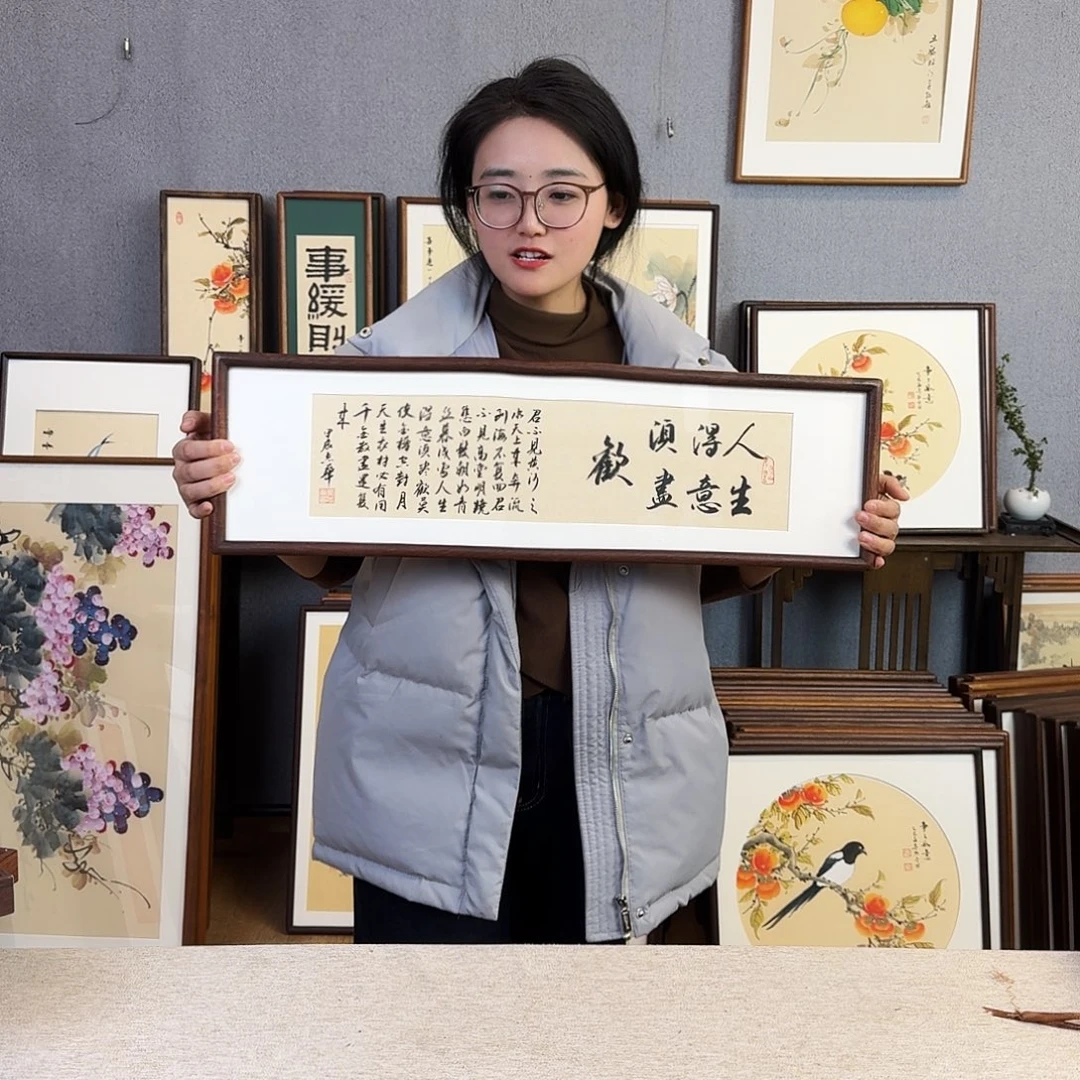 人生
得意
須盡
歡
君不見黃河之
水天上來奔流
到海不復回君
不見高堂明鏡
悲白髮朝如青
絲暮成雪人生
得意須盡歡莫
使金樽空對月
天生我材必有用
千金散盡還復
來
事緩則
事事如意
事事如意